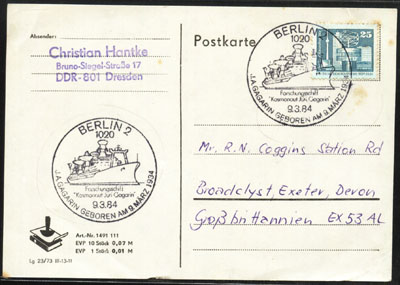 Absender:
Christian Hantke
Bruno-Siegel-Straße 17
DDR-801 Dresden
Postkarte
BERLIN 2
1020
Forschungsschiff
"Kosmonaut Juri Gagarin"
9.3.84
J.A. GAGARIN GEBOREN AM 9. MÄRZ 1934
25
BERLIN 2
1020
Forschungsschiff
"Kosmonaut Juri Gagarin"
9.3.84
J.A. GAGARIN GEBOREN AM 9. MÄRZ 1934
Mr. R.N. Coggins Station Rd
Broadclyst, Exeter, Devon
Großbrittannien EX5 3AL
Art.-Nr. 1491 111
EVP 10 Stück 0,07 M
EVP 1 Stück 0,01 M
Lg 23/73 III-13-11